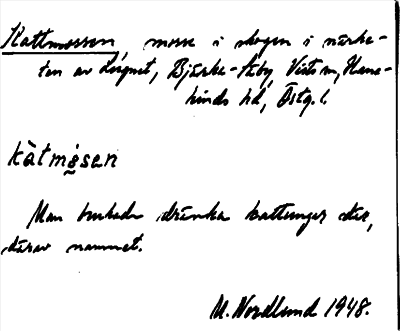 Kattmossen, mosse i skogen i närhe-
ten av Lugnet, Bjärka-Säby, Vists sn, Hane-
kinds hd, Östg. l.
kàtmósen
Man brukade dränka kattungar där,
därav namnet.
M. Nordlund 1948.